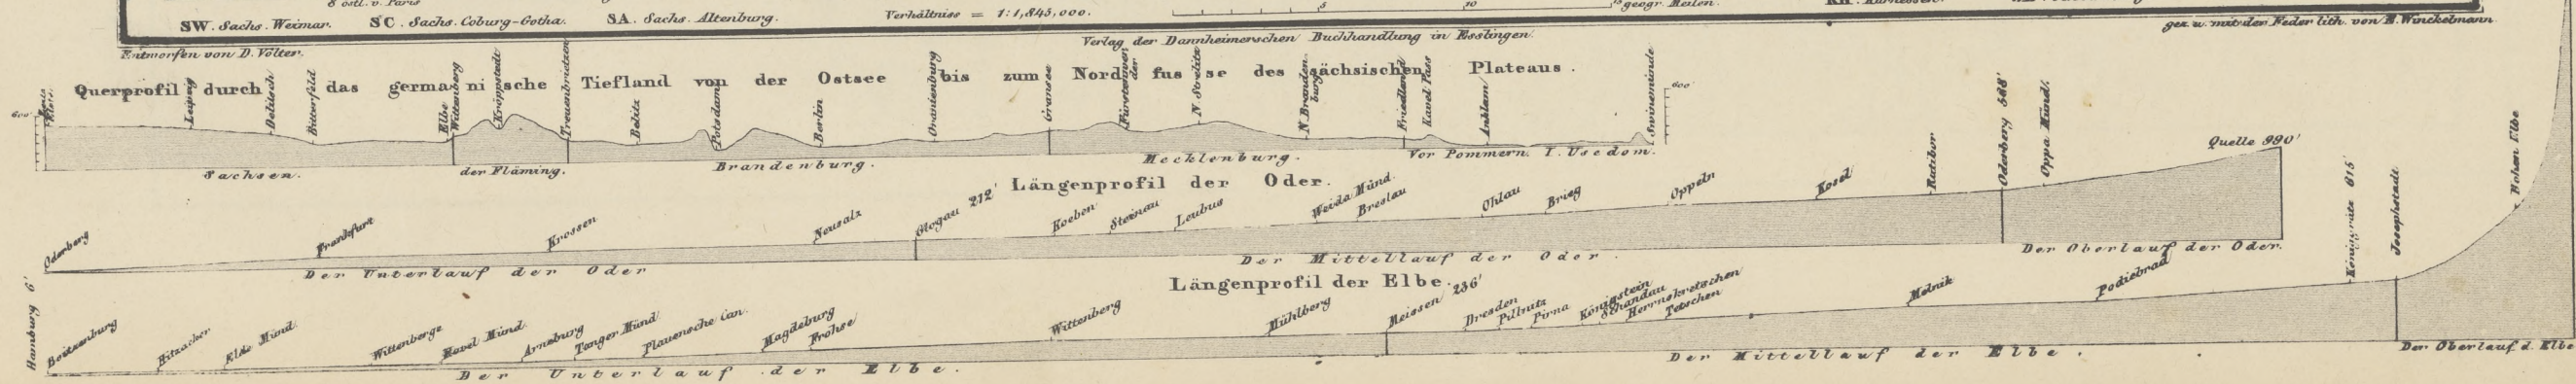 8 östl. v. Paris
SW. Sachs. Weimar. SC. Sachs. Coburg-Gotha. SA. Sachs. Altenburg. Verhältniss = 1:1,845,000. 5 10 15 geogr. Meilen.
Entworfen von D. Völter. Verlag der Dannheimerschen Buchhandlung in Esslingen. gez. u. mit der Feder lith. von E. Winckelmann
Querprofil durch das germanische Tiefland von der Ostsee bis zum Nordfusse des sächsischen Plateaus.
600' Leipzig Delitsch Bitterfeld Elbe Wittenberg Kröppstedt Treuenbrietzen Belitz Potsdam Berlin Oranienburg Gransee Fürstenwerder N. Strelitz N. Brandenburg Friedland Kavel Pass Anklam Swinemünde 600'
Sachsen. der Fläming. Brandenburg. Mecklenburg. Vor Pommern. I. Usedom.
Längenprofil der Oder.
Oderberg Frankfurt Krossen Neusalz Glogau 212' Koeben Steinau Leubus Weida Münd. Breslau Ohlau Brieg Oppeln Kosel Ratibor Oderberg 588' Oppa Münd. Quelle 990'
Der Unterlauf der Oder Der Mittellauf der Oder. Der Oberlauf der Oder.
Längenprofil der Elbe.
Hamburg 6' Boitzenburg Hitzacker Elde Münd. Wittenberge Havel Münd. Arneburg Tanger Münd. Plauensche Can. Magdeburg Frohse Wittenberg Mühlberg Meissen 236' Dresden Pillnitz Pirna Königstein Schandau Herrnskretschen Tetschen Melnik Podiebrad Königgrätz 615' Josephstadt Hohen Elbe
Der Unterlauf der Elbe. Der Mittellauf der Elbe. Der Oberlauf d. Elbe